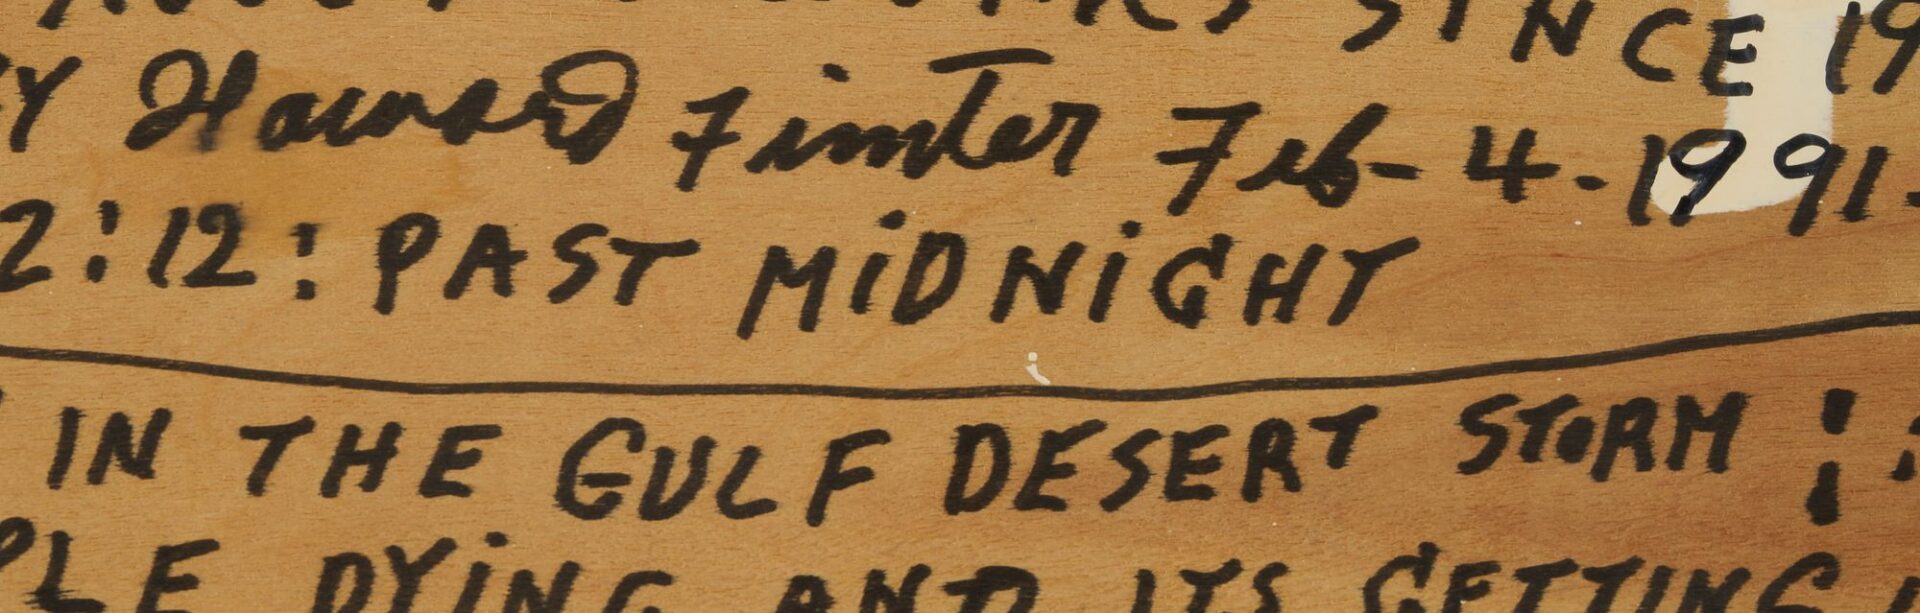 SINCE 19
BY Howard Finster Feb- 4.1991.
2:12: PAST MiDNiGHT
IN THE GULF DESERT STORM :
PLE DYiNG AND ITS GETTING